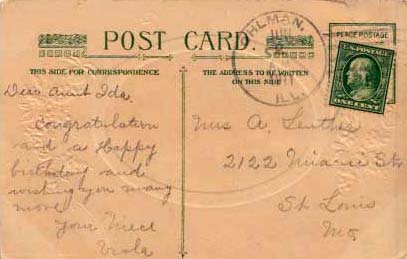 POST CARD.
PLACE POSTAGE
U.S. POSTAGE
ONE CENT
OHLMAN,
JUN
ILL.
THIS SIDE FOR CORRESPONDENCE
THE ADDRESS TO BE WRITTEN
ON THIS SIDE
Dear Aunt Ida.
Congratulation
and a Happy
birthday and
wishing you many
more
Your Niece
Viola
Mrs A.
2122 St.
St Louis
Mo